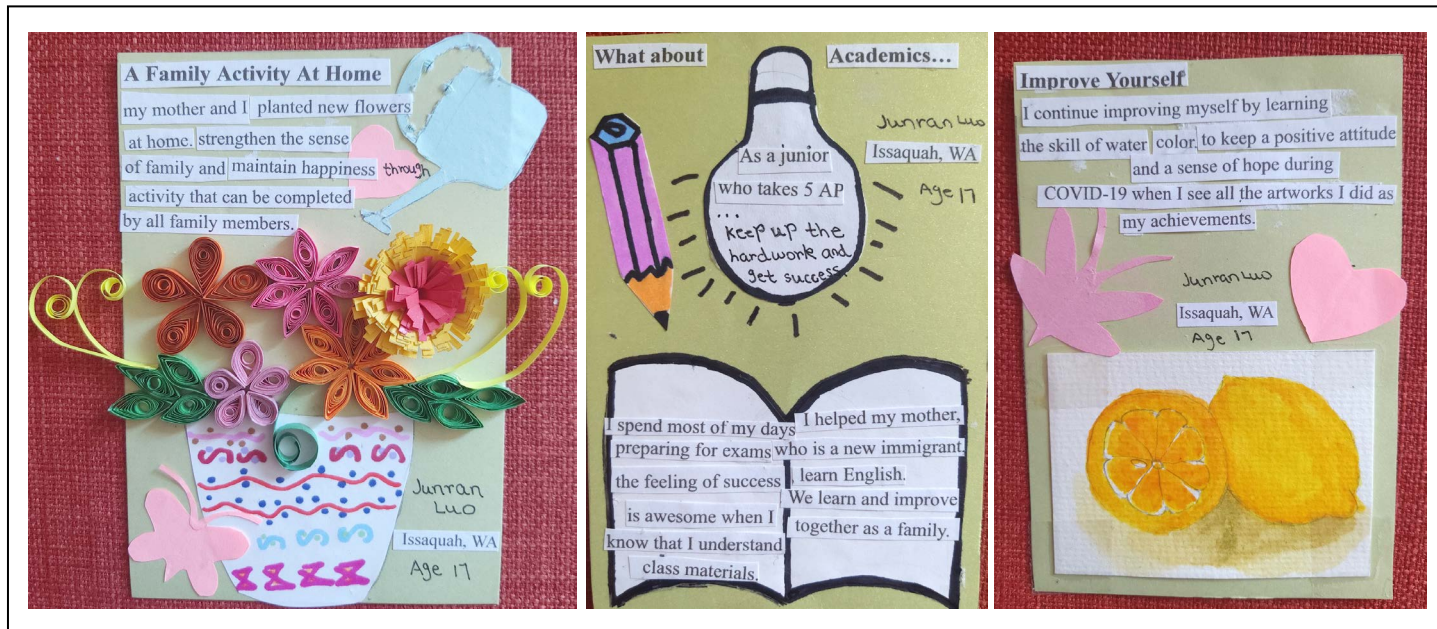 A Family Activity At Home
my mother and I planted new flowers
at home. strengthen the sense
of family and maintain happiness through
activity that can be completed
by all family members.
Junran
Luo
Issaquah, WA
Age 17
What about Academics...
Junran Luo
Issaquah, WA
Age 17
As a junior
who takes 5 AP
...
keep up the
hardwork and
get success.
I spend most of my days
preparing for exams
the feeling of success
is awesome when I
know that I understand
class materials.
I helped my mother,
who is a new immigrant,
learn English.
We learn and improve
together as a family.
Improve Yourself
I continue improving myself by learning
the skill of water color. to keep a positive attitude
and a sense of hope during
COVID-19 when I see all the artworks I did as
my achievements.
Junran Luo
Issaquah, WA
Age 17